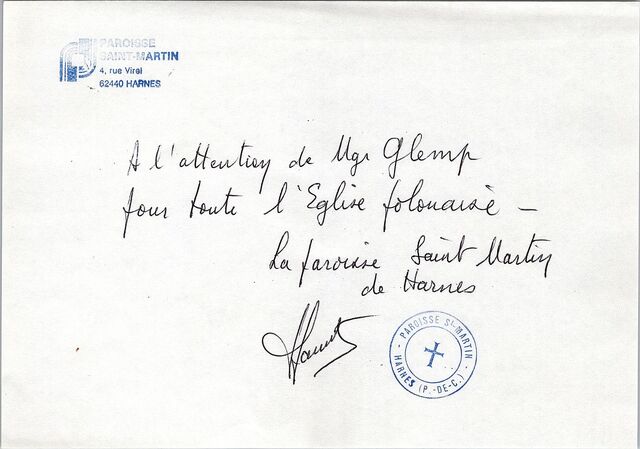 PAROISSE
SAINT-MARTIN
4, rue Virel
62440 HARNES
A l'attention de Mgr Glemp
pour toute l'Eglise polonaise -
La paroisse Saint Martin
de Harnes
- PAROISSE St-MARTIN -
HARNES (P.-DE-C.)